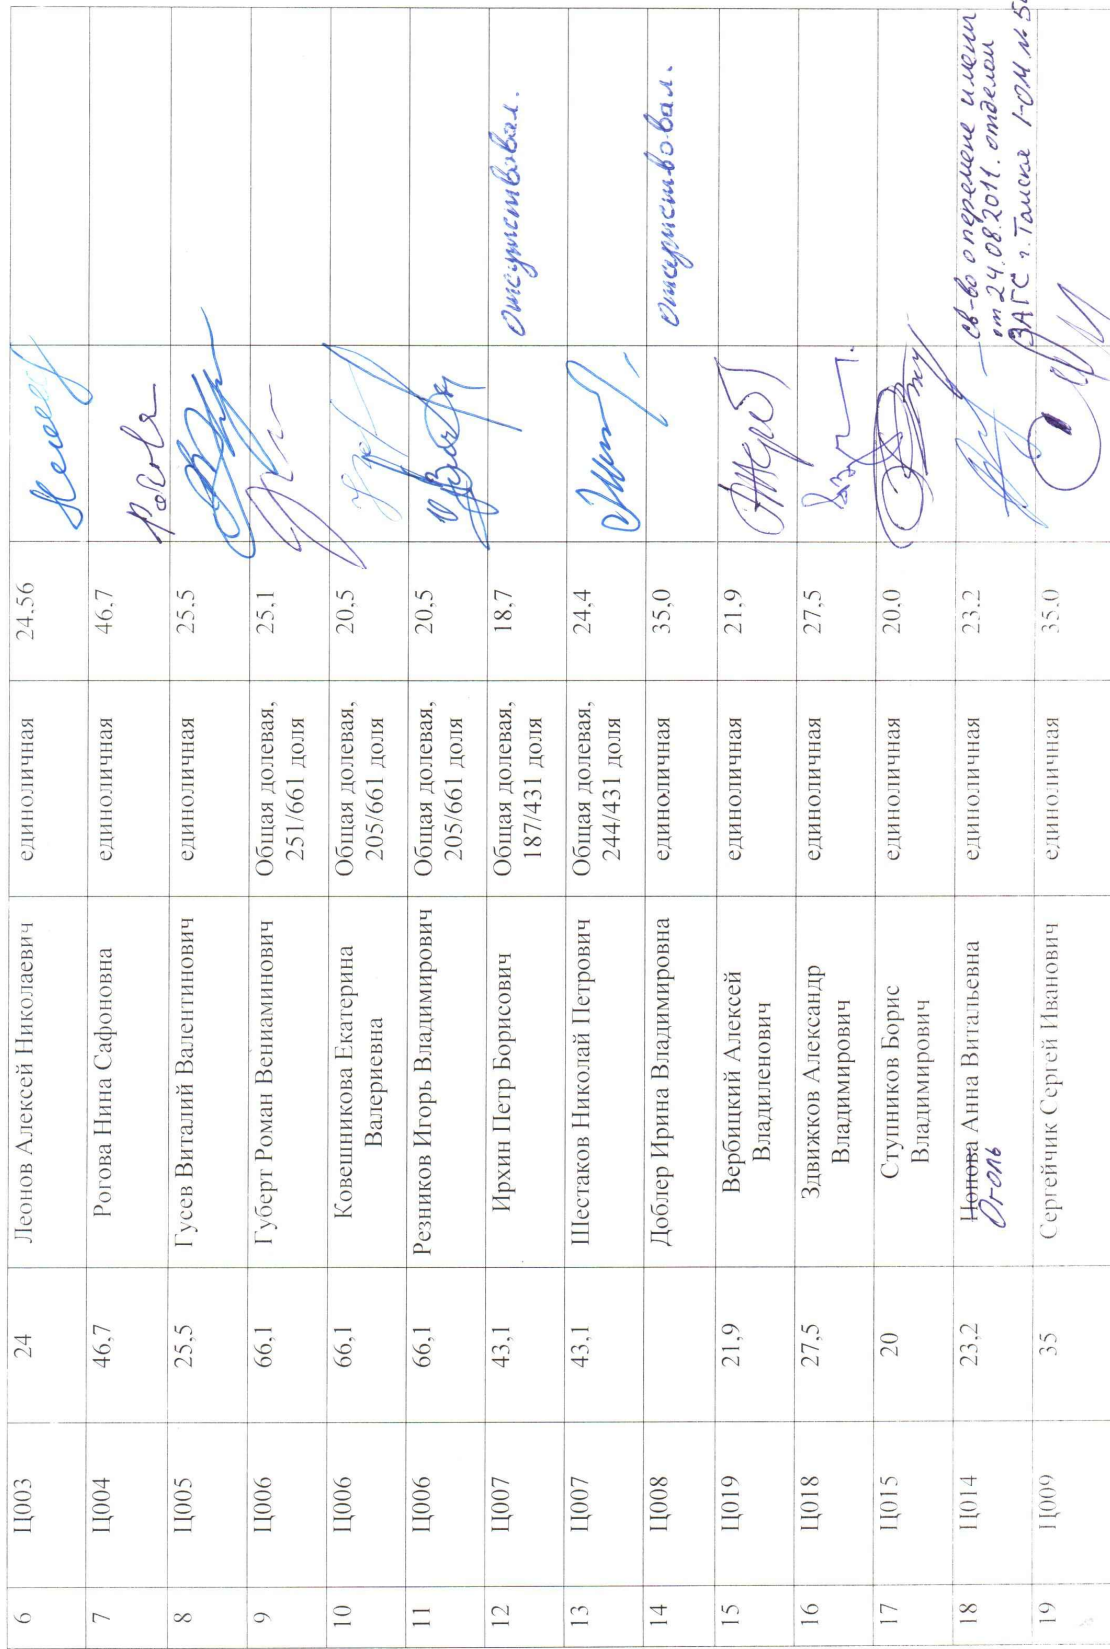 6 Ц003 24 Леонов Алексей Николаевич единоличная 24.56
7 Ц004 46,7 Рогова Нина Сафоновна единоличная 46.7
8 Ц005 25,5 Гусев Виталий Валентинович единоличная 25.5
9 Ц006 66,1 Губерт Роман Вениаминович Общая долевая, 25,1
251/661 доля
10 Ц006 66,1 Ковешникова Екатерина Общая долевая, 20.5
Валериевна 205/661 доля
11 Ц006 66,1 Резников Игорь Владимирович Общая долевая, 20,5
205/661 доля
12 Ц007 43,1 Ирхин Петр Борисович Общая долевая, 18,7 отсутствовал.
187/431 доля
13 Ц007 43,1 Шестаков Николай Петрович Общая долевая, 24,4
244/431 доля
14 Ц008 Доблер Ирина Владимировна единоличная 35,0 отсутствовал.
15 Ц019 21,9 Вербицкий Алексей единоличная 21,9
Владиленович
16 Ц018 27,5 Здвижков Александр единоличная 27,5
Владимирович
17 Ц015 20 Ступников Борис единоличная 20.0
Владимирович
18 Ц014 23,2 Попова Анна Витальевна единоличная 23.2 св-во о перемене имени
Оголь от 24.08.2011. отделом
ЗАГС г. Томска I-ОМ №
19 Ц009 35 Сергейчик Сергей Иванович единоличная 35.0